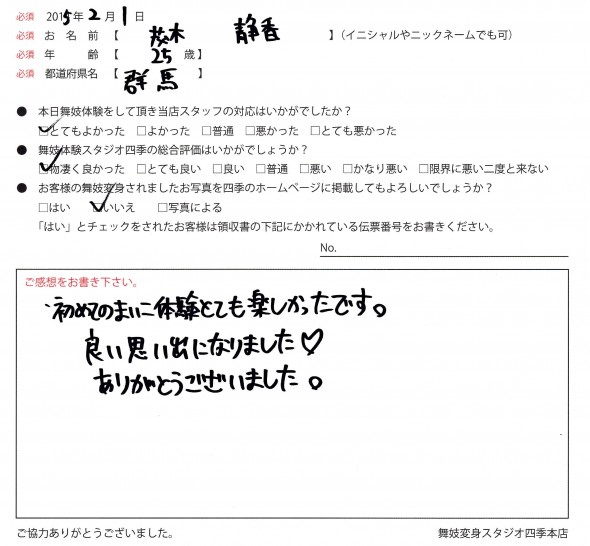 必須 2015年2月1日
必須 お名前【 茂木 静香 】（イニシャルやニックネームでも可）
必須 年 齢【 25 歳】
必須 都道府県名【 群馬 】
● 本日舞妓体験をして頂き当店スタッフの対応はいかがでしたか？
☑とてもよかった □よかった □普通 □悪かった □とても悪かった
● 舞妓体験スタジオ四季の総合評価はいかがでしょうか？
☑物凄く良かった □とても良い □良い □普通 □悪い □かなり悪い □限界に悪い二度と来ない
● お客様の舞妓変身されましたお写真を四季のホームページに掲載してもよろしいでしょうか？
□はい ☑いいえ □写真による
「はい」とチェックをされたお客様は領収書の下記にかかれている伝票番号をお書きください。
No.
ご感想をお書き下さい。
・初めてのまいこ体験とても楽しかったです。
良い思い出になりました♡
ありがとうございました。
ご協力ありがとうございました。
舞妓変身スタジオ四季本店